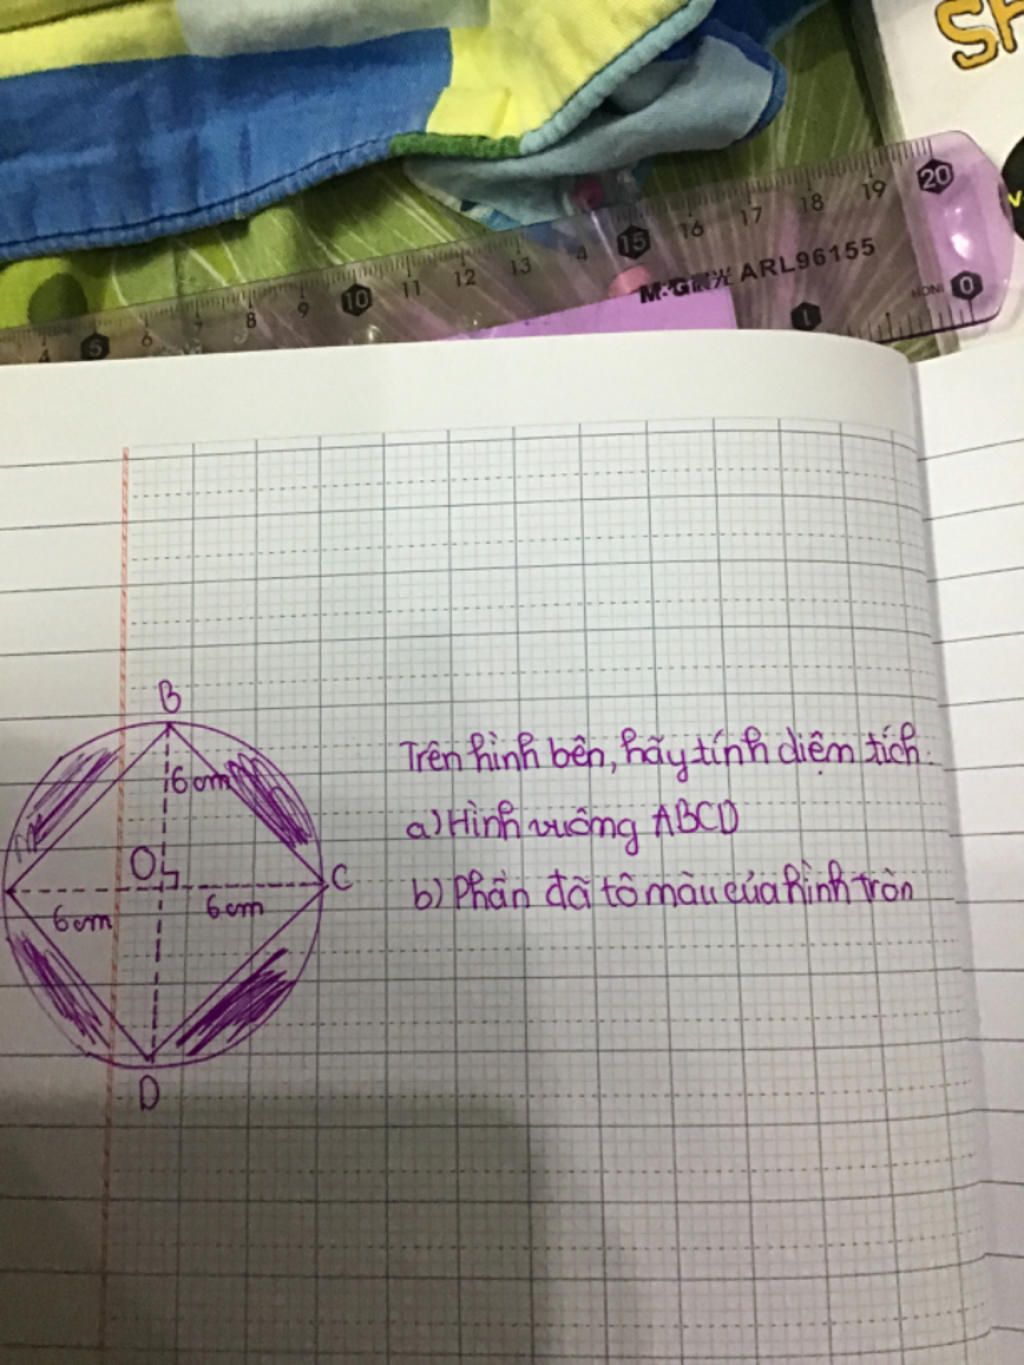 SH
4 5 6 7 8 9 10 11 12 13 4 15 16 17 18 19 20
M&G晨光 ARL96155
1 0
B
6cm
O
C
6cm
6cm
D
Trên hình bên, hãy tính diện tích.
a) Hình vuông ABCD
b) Phần đã tô màu của hình tròn